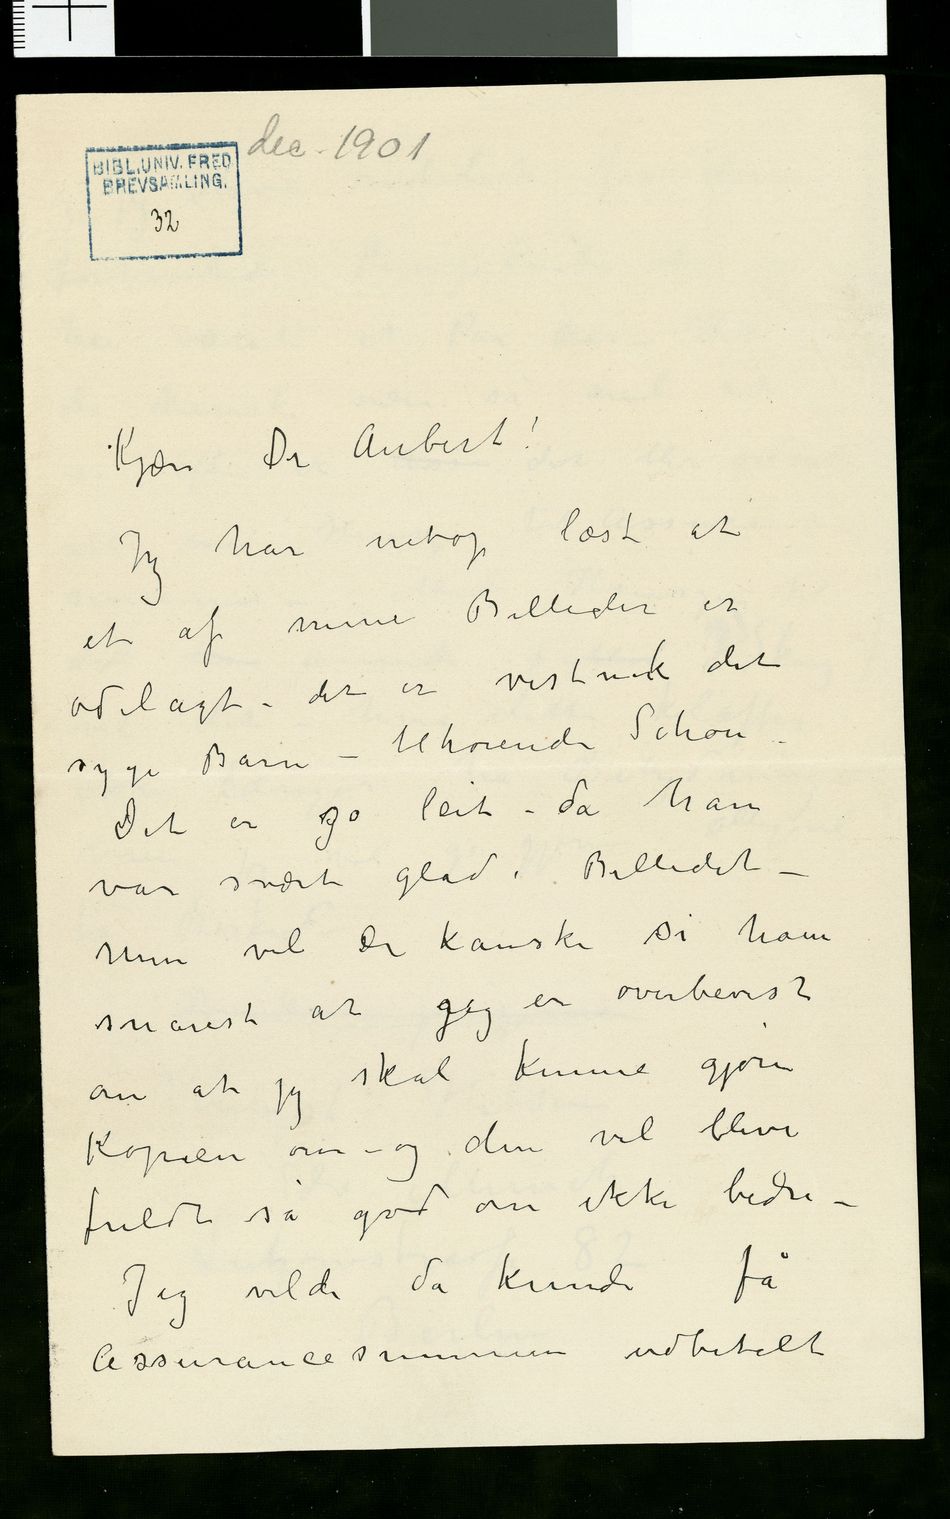 dec. 1901
BIBL. UNIV. FRED
BREVSAMLING.
32
Kjære Dr Aubert!
Jeg har netop læst at
et af mine Billeder er
ødelagt – det er vistnok det
syge Barn – tilhørende Schou –
Det er jo leit – da han
var svært glad i Billedet –
Men vil De kanske si ham
snarest at jeg er overbevist
om at jeg skal kunne gjøre
Kopien om – og den vil blive
fuldt så god om ikke bedre –
Jeg vilde da kunde få
Assurancesummen udbetalt